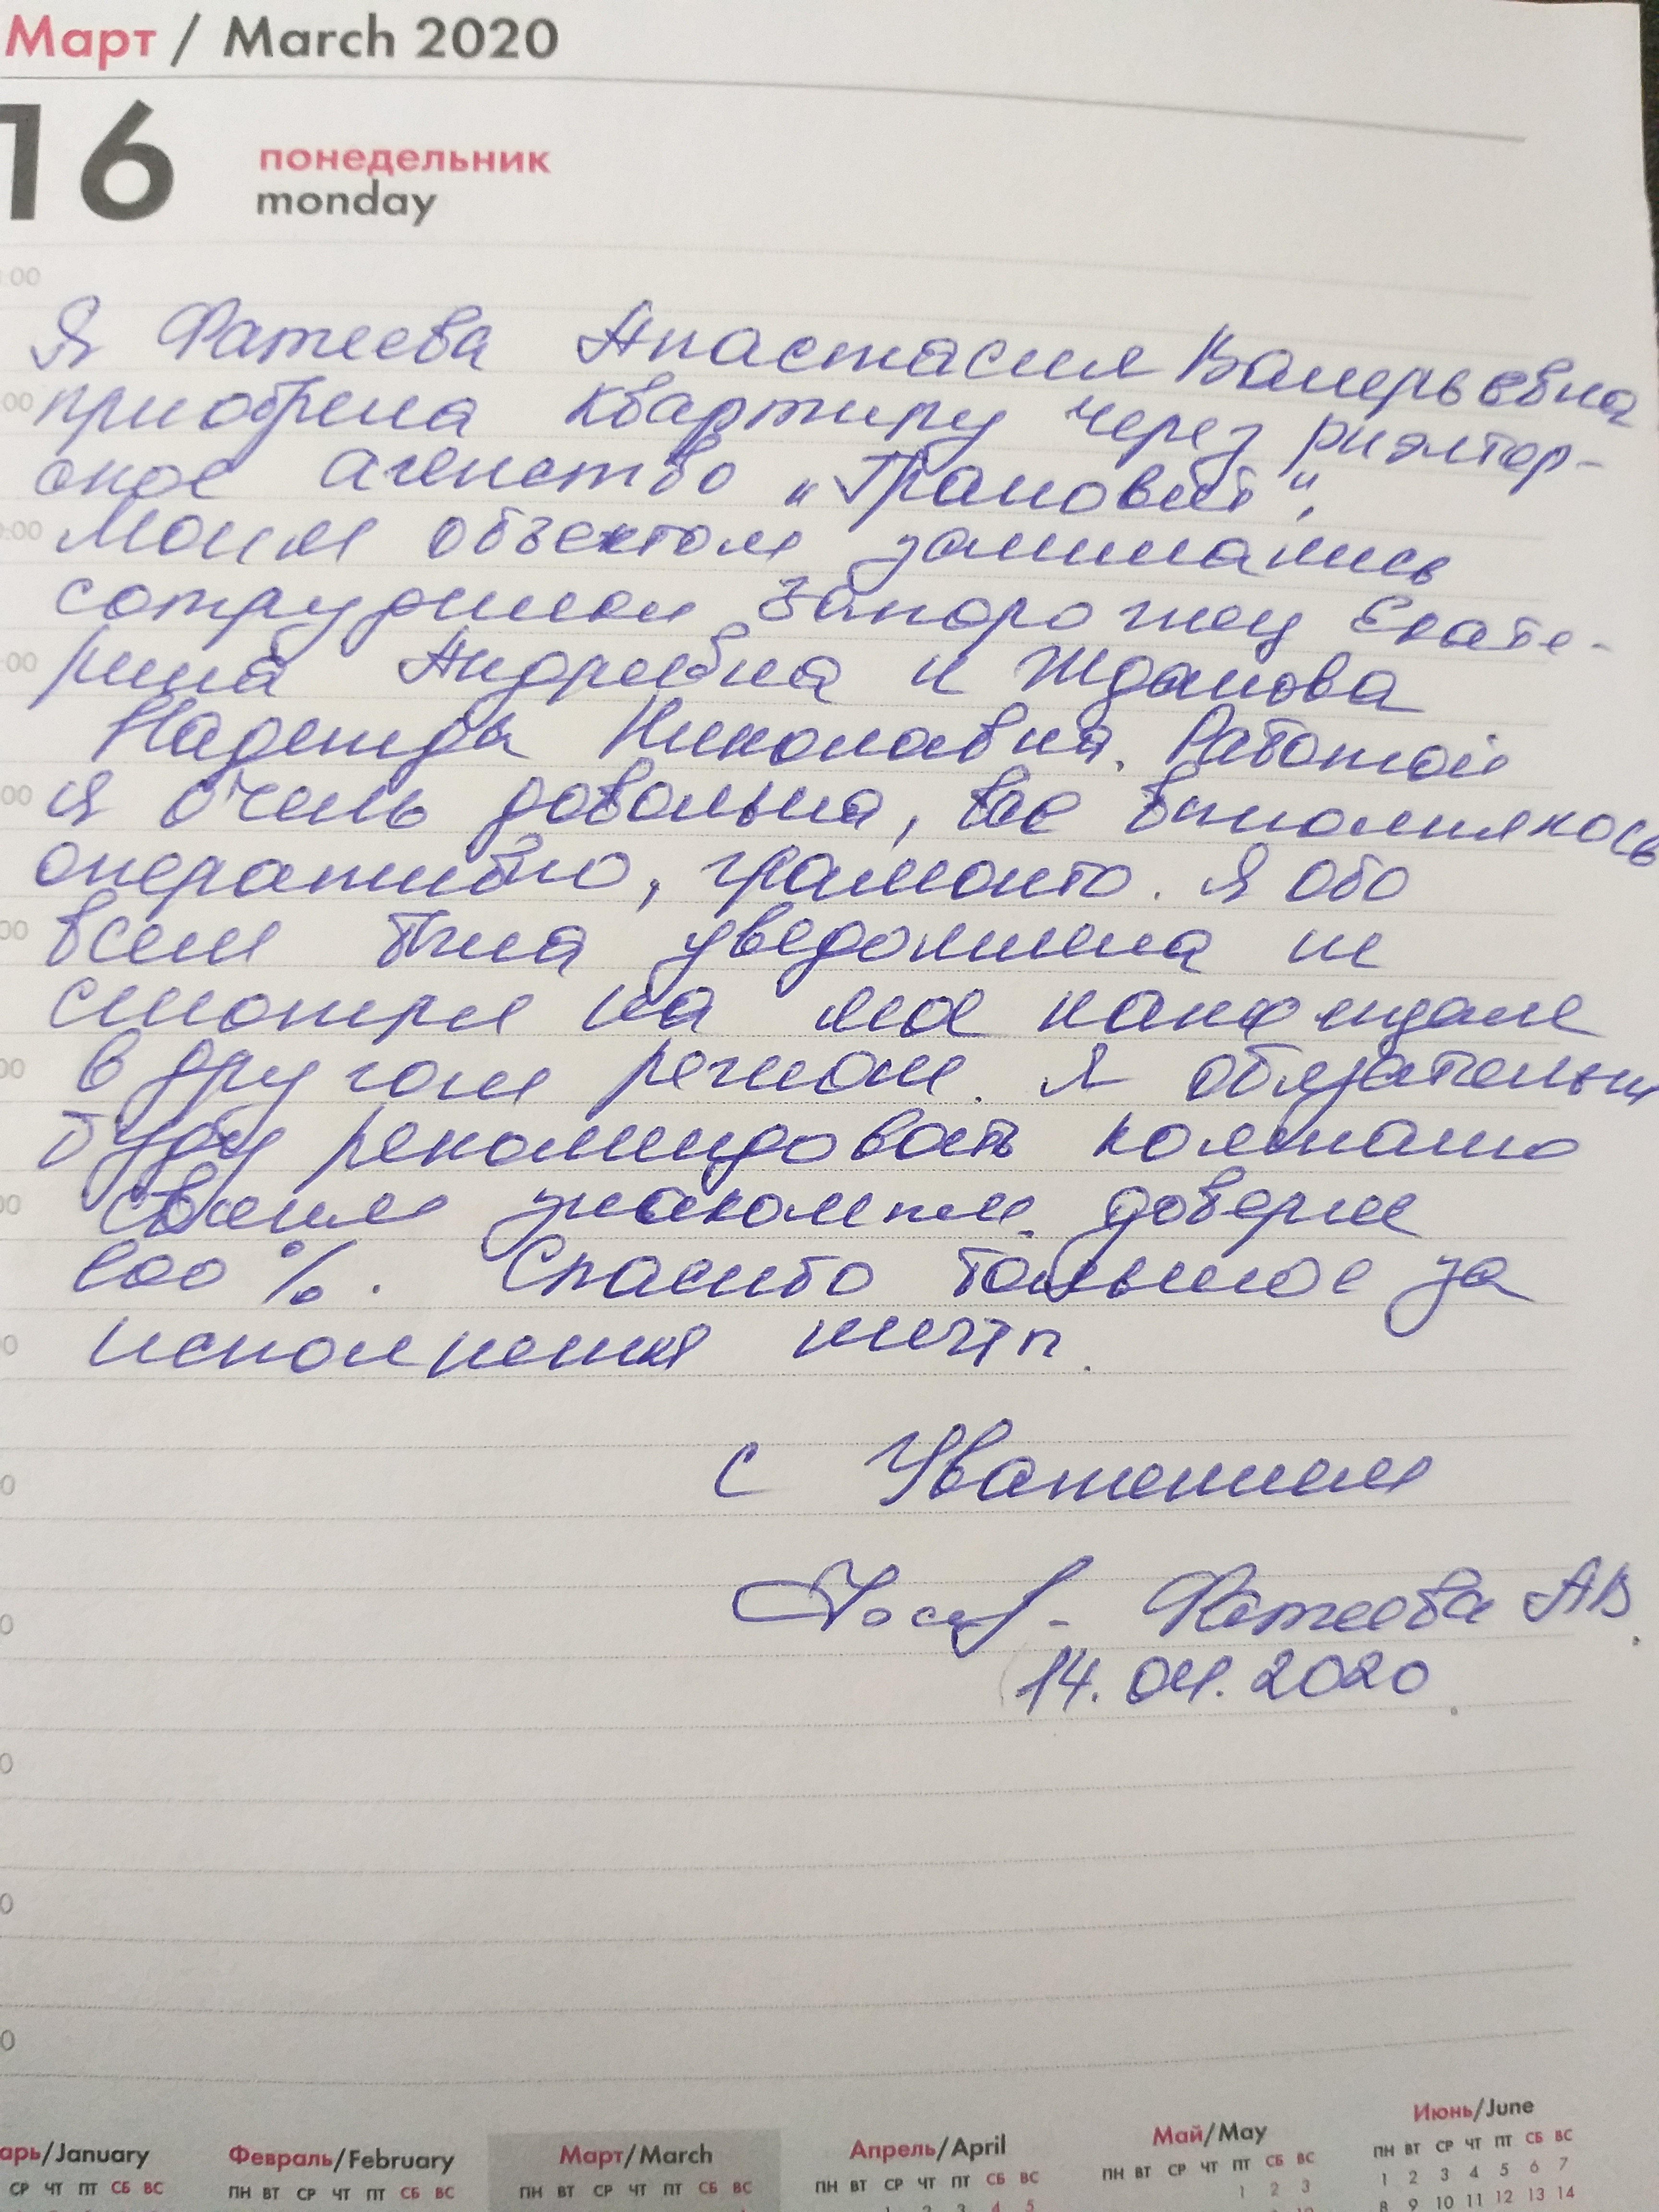 Март / March 2020
16 понедельник
monday
Я Фатеева Анастасия Валерьевна
приобрела квартиру через риэлтор-
ское агенство „Грановит“.
Моим объектом занимались
сотрудники Запорожец Екате-
рина Андреевна и Жданова
Надежда Николавна. Работой
я очень довольна, все выполнялось
оперативно, грамонто. Я обо
всем была уведомлена не
смотря на мое нахождние
в другом регионе. Я обязательны
буду рекомендовать компанию
своим знакомым. доверие
100 %. Спасибо большое за
исполнения мечты.
С Уважением
Фатеева АВ.
14.04.2020
арь/January
СР ЧТ ПТ СБ ВС
Февраль/February
ПН ВТ СР ЧТ ПТ СБ ВС
Март/March
ПН ВТ СР ЧТ ПТ СБ ВС
Апрель/April
ПН ВТ СР ЧТ ПТ СБ ВС
1 2 3 4 5
Май/May
ПН ВТ СР ЧТ ПТ СБ ВС
1 2 3
Июнь/June
ПН ВТ СР ЧТ ПТ СБ ВС
1 2 3 4 5 6 7
8 9 10 11 12 13 14